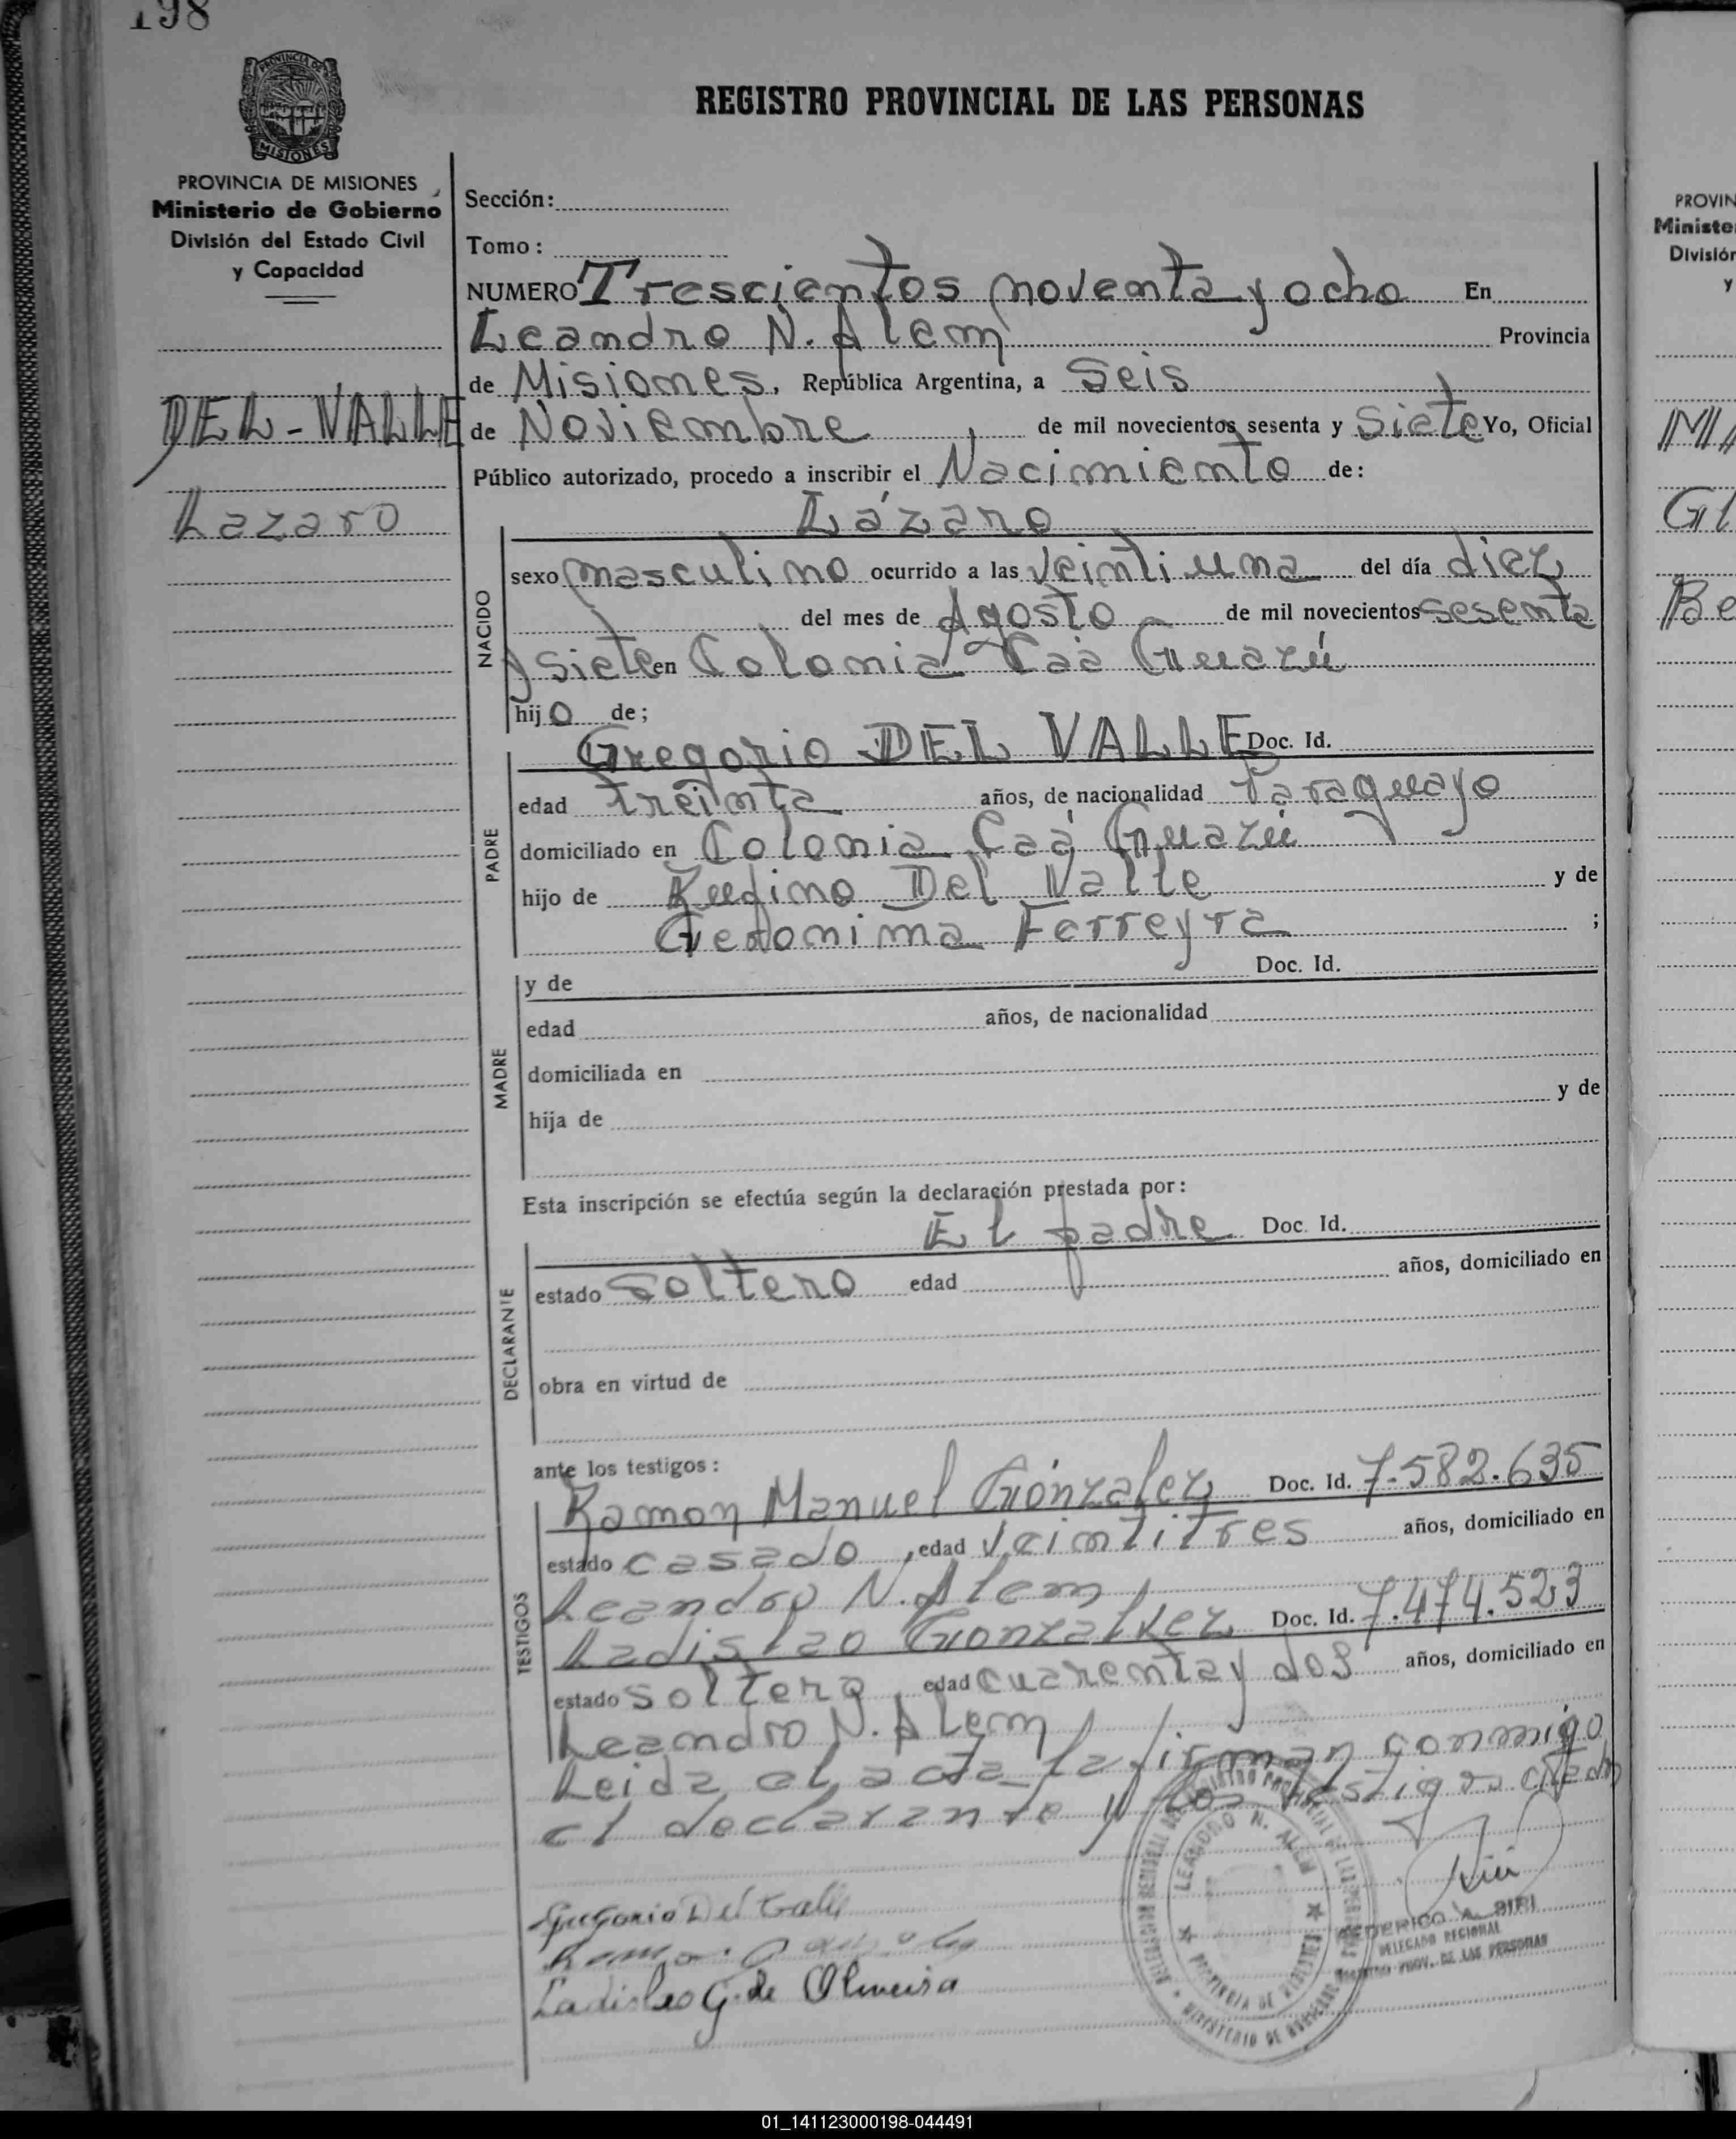 198
PROVINCIA DE MISIONES
PROVINCIA DE MISIONES
Ministerio de Gobierno
División del Estado Civil
y Capacidad
DEL-VALLE
Lazaro
REGISTRO PROVINCIAL DE LAS PERSONAS
Sección:
Tomo:
NUMERO Trescientos noventa y ocho En
Leandro N. Alem Provincia
de Misiones, República Argentina, a Seis
de Noviembre de mil novecientos sesenta y siete Yo, Oficial
Público autorizado, procedo a inscribir el Nacimiento de:
Lázaro
NACIDO
sexo masculino ocurrido a las veintiuna del día diez
del mes de Agosto de mil novecientos sesenta
y siete en Colonia Caá Guazú
hijo de;
Gregorio DEL VALLE Doc. Id.
PADRE
edad treinta años, de nacionalidad Paraguayo
domiciliado en Colonia Caá Guazú
hijo de Rufino Del Valle y de
Geronima Ferreyra ;
y de Doc. Id.
MADRE
edad años, de nacionalidad
domiciliada en
hija de y de
Esta inscripción se efectúa según la declaración prestada por:
El padre Doc. Id.
DECLARANTE
estado soltero edad años, domiciliado en
obra en virtud de
ante los testigos:
Ramon Manuel Gónzalez Doc. Id. 7.582.635
TESTIGOS
estado casado, edad veintitres años, domiciliado en
Leandro N. Alem
Ladislao Gonzalvez Doc. Id. 7.474.523
estado soltero, edad cuarenta y dos años, domiciliado en
Leandro N. Alem
Leida el acta la firman conmigo
el declarante y los testigos citados
Gregorio Del Valle
Ladisleo G. de Oliveira
LEANDRO N. ALEM
PROVINCIA DE MISIONES
FEDERICO A. SIRI
DELEGADO REGIONAL
REGISTRO PROV. DE LAS PERSONAS
PROVIN
Ministe
División
y
MA
Gl
Be
01_141123000198-044491